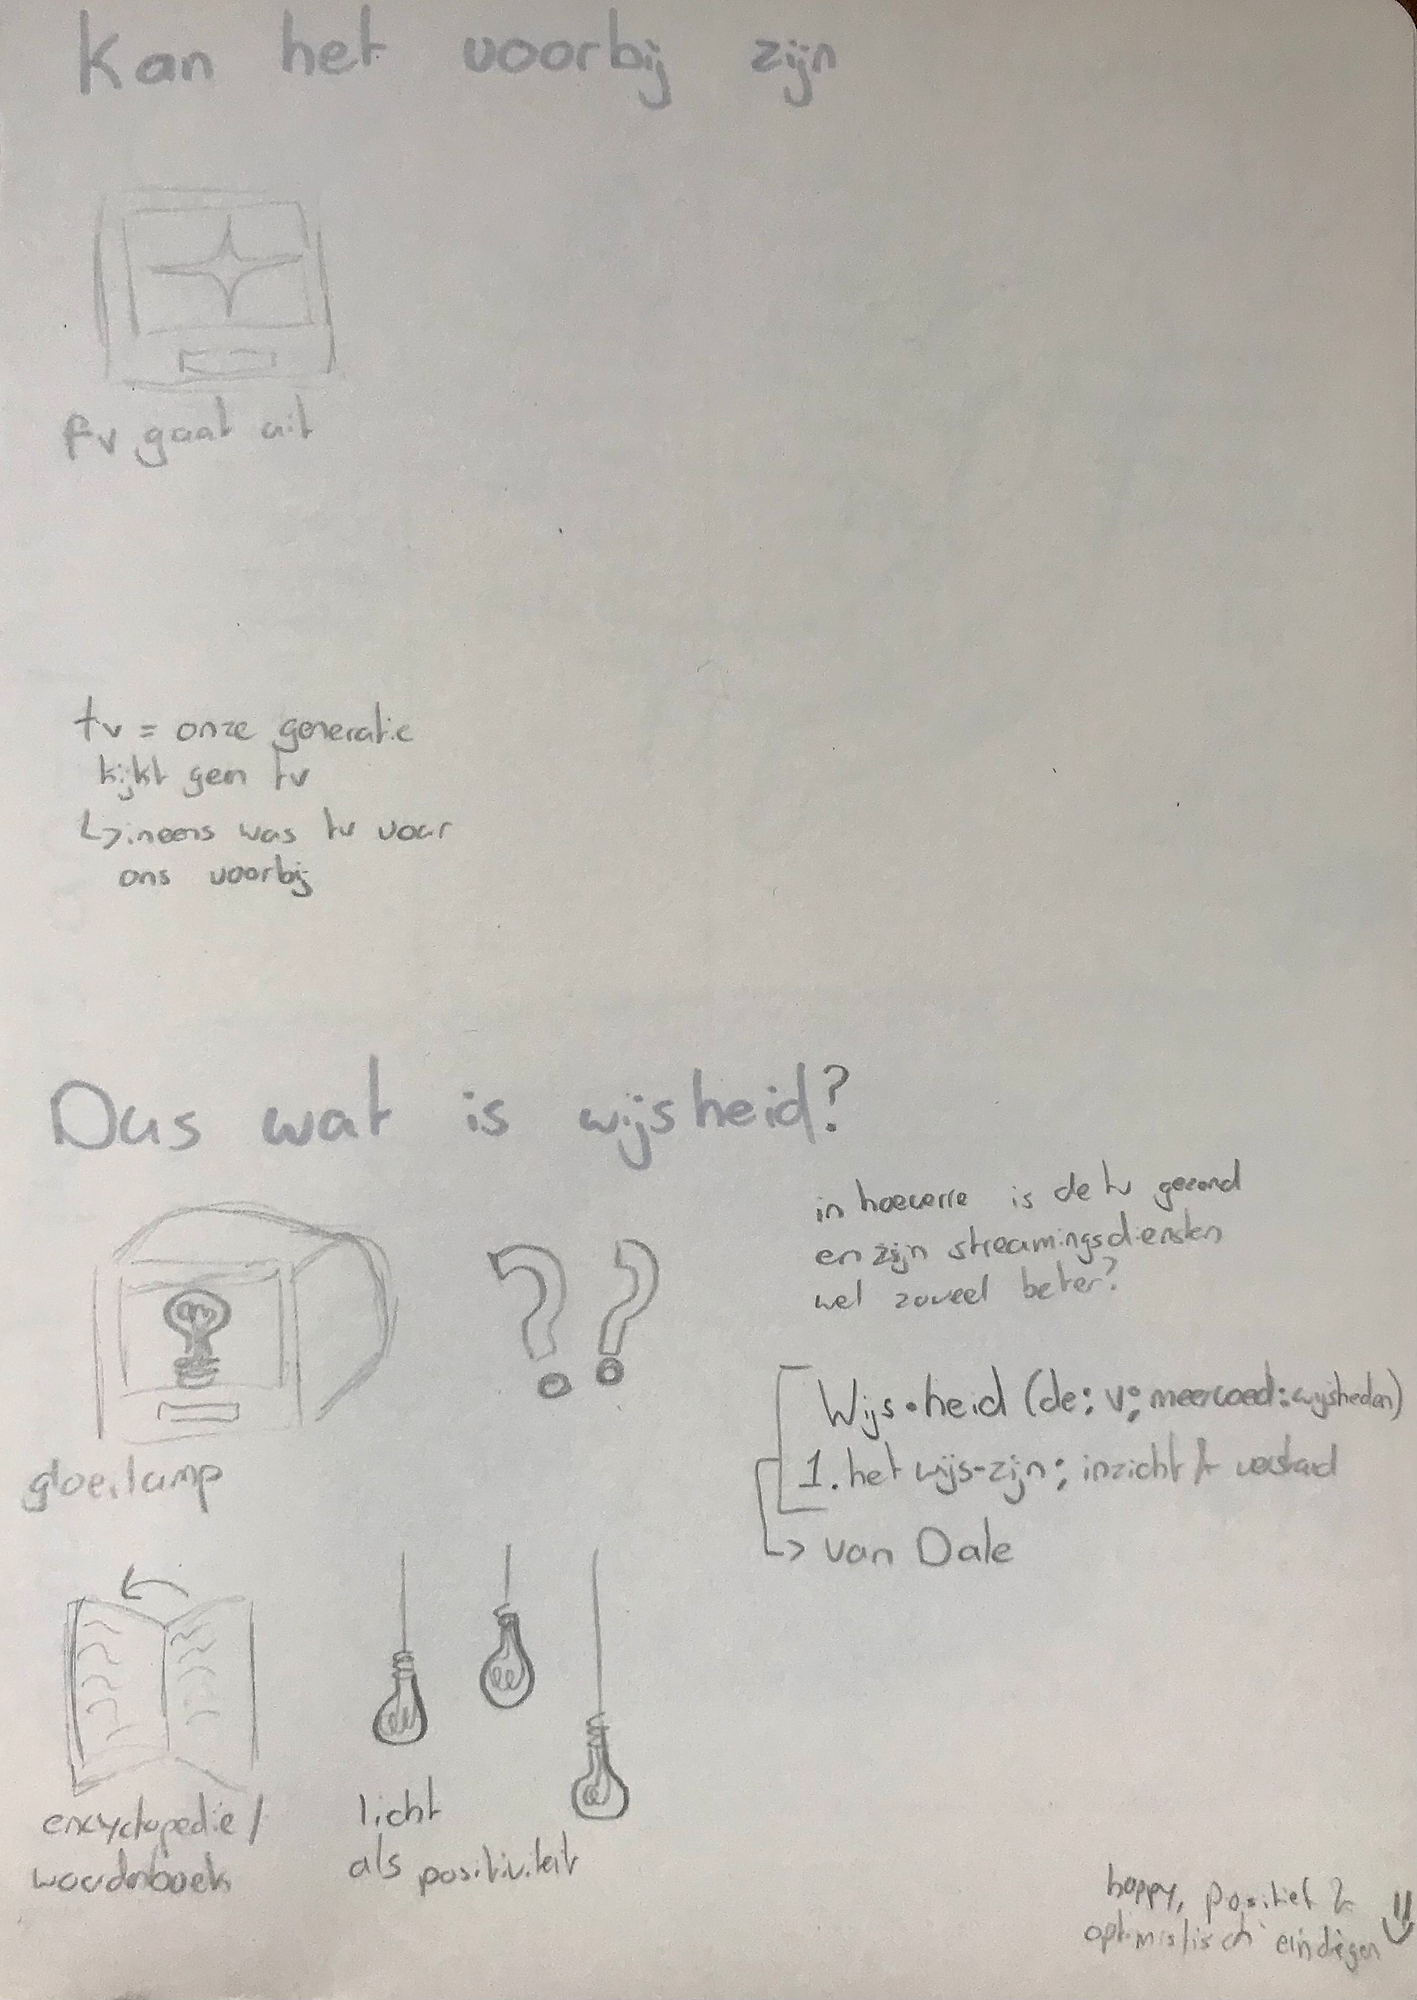 Kan het voorbij zijn
tv gaat uit
tv = onze generatie
kijkt geen tv
↳ ineens was tv voor
ons voorbij
Dus wat is wijsheid?
in hoeverre is de tv gezond
en zijn streamingsdiensten
wel zoveel beter?
Wijs•heid (de; v; meervoud: wijsheden)
1. het wijs-zijn; inzicht & verstand
↳ van Dale
gloeilamp
encyclopedie/
woordenboek
licht
als positiviteit
happy, positief &
optimistisch eindigen